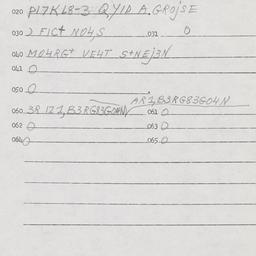 020 P17K18-3 Q,Y1D A. GROJSE
030 2 FIC+ NO4,S 031 0
040 MO4RG+ VE4T S+NEJ3N
041 0
050 0
AR1,B3RG83G04N
060 3R 121,B3RG83G04N 061 0
062 0 063 0
064 0 065 0